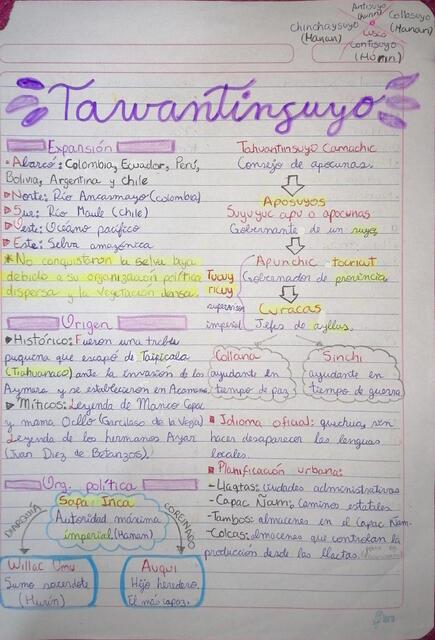 Antisuyo
(Hurin)
Collasuyo
(Hanan)
Chinchaysuyo
(Hanan)
Cusco
Contisuyo
(Hurin)
Tawantinsuyo
Expansión
• Abarcó: Colombia, Ecuador, Perú,
Bolivia, Argentina y Chile
Norte: Río Ancasmayo (Colombia)
Sur: Río Maule (Chile)
Oeste: Océano pacífico
Este: Selva amazónica
* No conquistaron la selva baja
debido a su organización política
dispersa y la vegetación densa.
Origen
Histórico: Fueron una tribu
pequeña que escapó de Taipicala
(Tiahuanaco) ante la invasión de los
Aymara y se establecieron en
Míticos: Leyenda de Manco Capac
y mama Ocllo (Garcilaso de la Vega)
Leyenda de los hermanos Ayar
(Juan Diez de Betanzos).
Org. política
Sapa Inca
Autoridad máxima
imperial (Hanan)
DIARQUÍA
COREINADO
Willac Umu
Sumo sacerdote
(Hurin)
Auqui
Hijo heredero.
El más capaz.
Tahuantinsuyo Camachic
Consejo de apocunas.
Aposuyos
Suyuyuc apu o apocunas
Gobernante de un suyo
Apunchic tocricut
Gobernador de provincia
Tucuy
ricuy
supervisor
imperial
Curacas
Jefes de ayllus.
Collana
ayudante en
tiempo de paz
Sinchi
ayudante en
tiempo de guerra
Idioma oficial: quechua, sin
hacer desaparecer las lenguas
locales.
Planificación urbana:
- Llactas: ciudades administrativas
- Capac Ñam: Caminos estatales
- Tambos: almacenes en el Capac Ñam
- Colcas: almacenes que controlan la
producción desde las llactas.